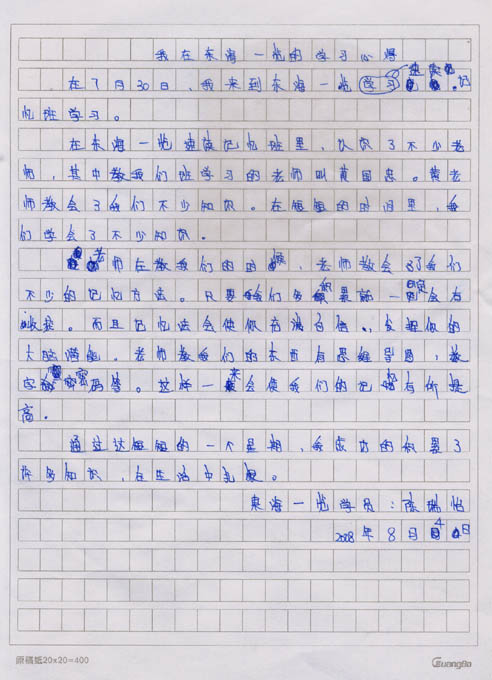 我在东海一览的学习心得
在7月30日,我来到东海一览学习速读记
忆班学习。
在东海一览速读记忆班里,认识了不少老
师,其中教我们班学习的老师叫黄国忠。黄老
师教会了我们不少知识。在短短的时间里,我
们学会了不少知识。
老师在教我们的时候,老师教会了我们
不少的记忆方法。只要我们多积累就一定会有
收获。而且记忆法会使你充满自信,发掘你的
大脑潜能。老师教我们的东西有思维导图,数
字密码等。这样一来会使我们的记忆有所提
高。
通过这短短的一个星期,我成功的积累了
许多知识,在生活中
东海一览学员:陈瑞怡
2008年8月4日
原稿紙20×20=400
GuangBo